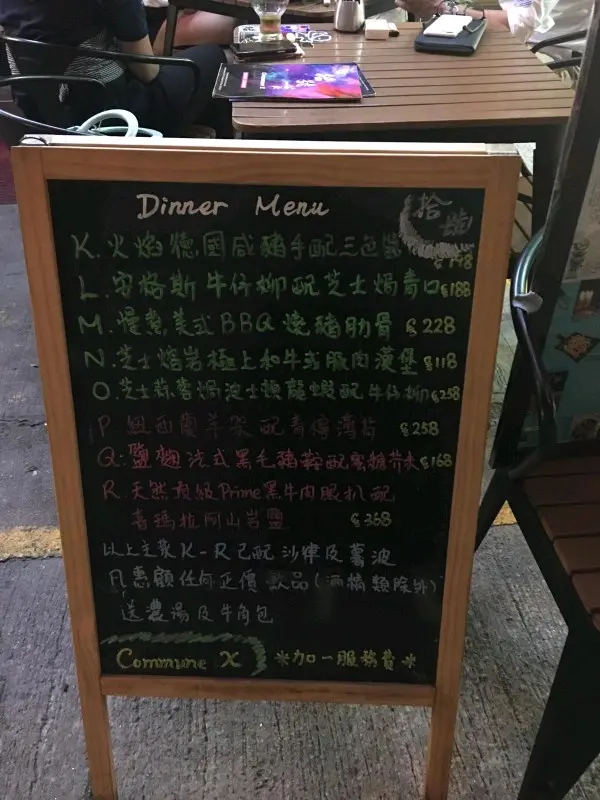 Dinner Menu
拾號
K. 火焰德國咸豬手配三色 $148
L. 安格斯牛仔柳配芝士焗青口 $188
M. 慢煮美式BBQ燒豬肋骨 $228
N. 芝士熔岩極上和牛或豚肉漢堡 $118
O. 芝士蒜蓉焗波士頓龍蝦配牛仔柳 $258
P. 紐西蘭羊架配青檸薄荷 $258
Q. 鹽麴法式黑毛豬鞍配蜜糖芥末 $168
R. 天然頂級Prime黑牛肉眼扒配
喜瑪拉阿山岩鹽 $368
以上主菜K-R已配沙律及薯波
凡惠顧任何正價飲品(酒精類除外)
送濃湯及牛角包
Commune X *加一服務費*